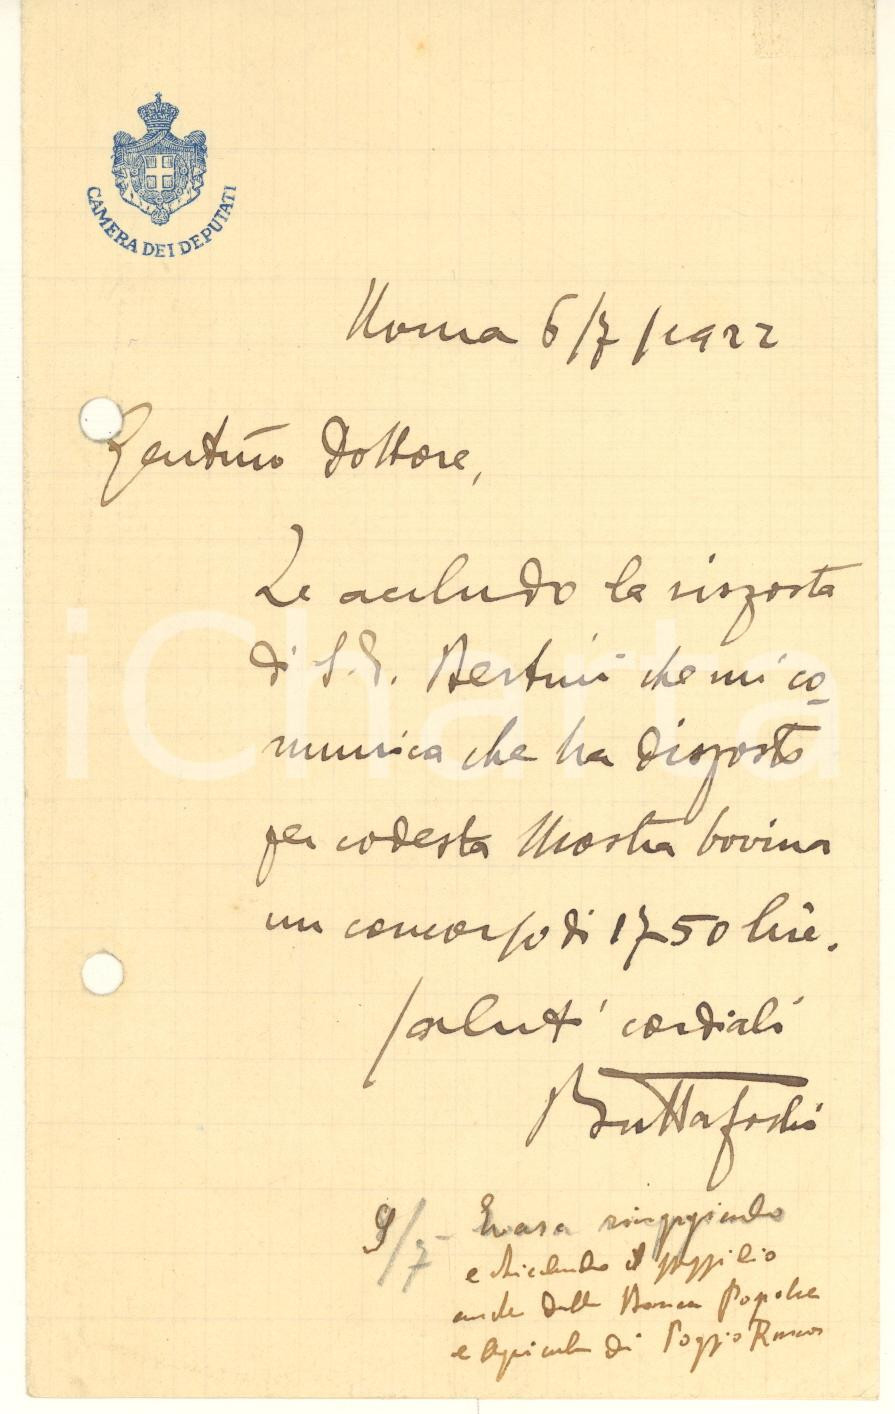 CAMERA DEI DEPUTATI
Roma 6/7/1922
Gentmo Dottore,
Le accludo la risposta
di S.E. Bertini che mi co-
munica che ha disposto
per codesta Mostra bovina
un concorso di 1750 lire.
Saluti cordiali
Buttafochi
9/7 - Evasa ringraziando
e chiedendo il sussidio
anche dalla Banca Popolare
e Agricola di Poggio Rusco
iCharta